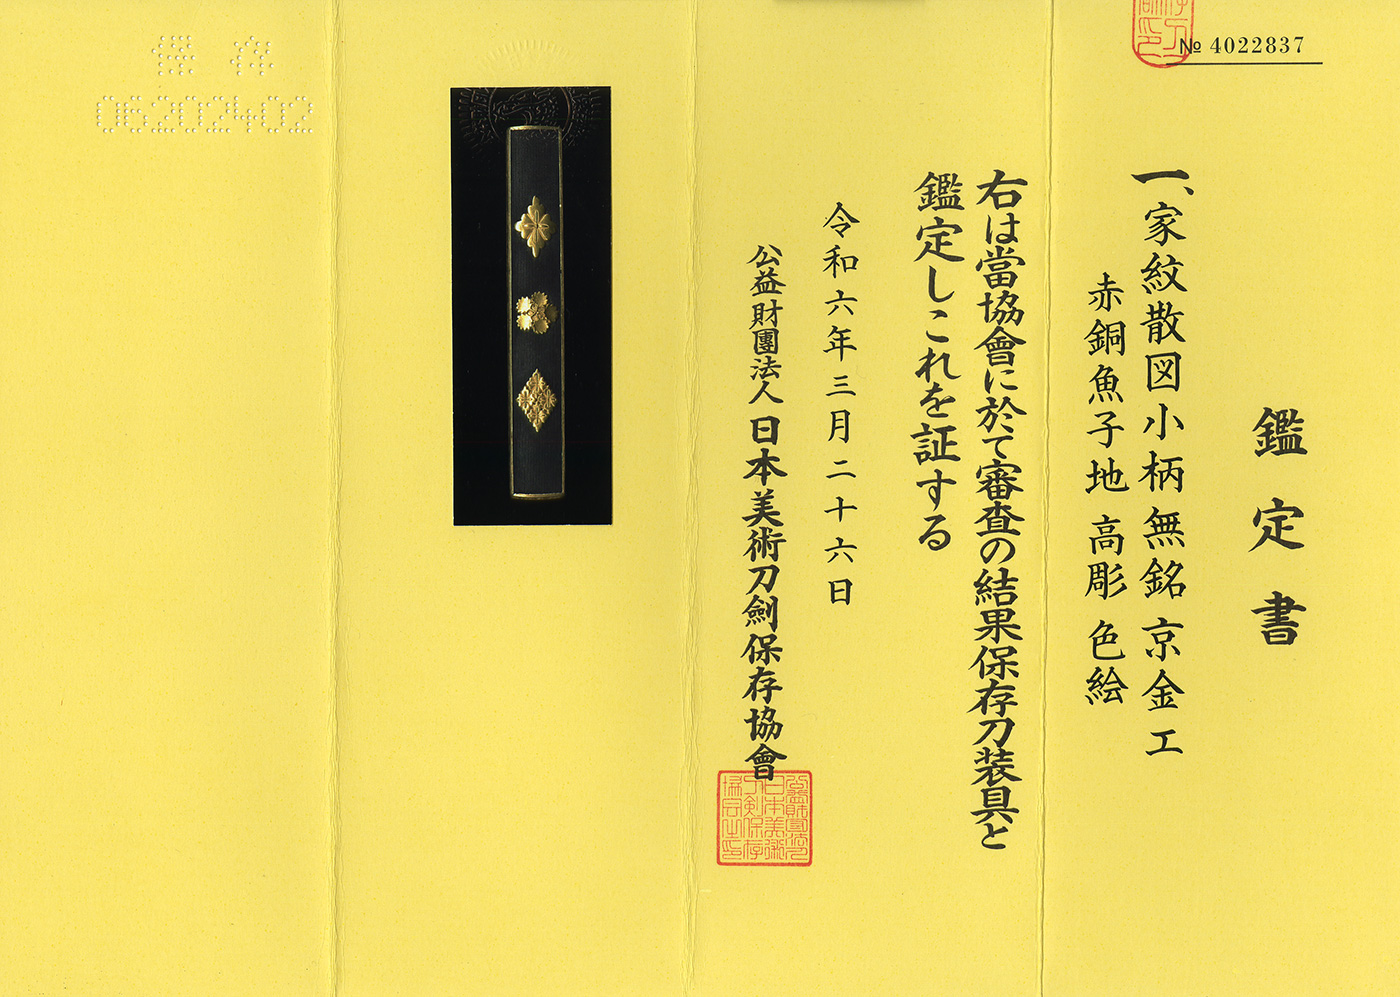 № 4022837
鑑定書
一、家紋散図小柄 無銘 京金工
赤銅魚子地 高彫 色絵
右は當協會に於て審査の結果保存刀装具と
鑑定しこれを証する
令和六年三月二十六日
公益財團法人 日本美術刀劍保存協會
保存
06202402